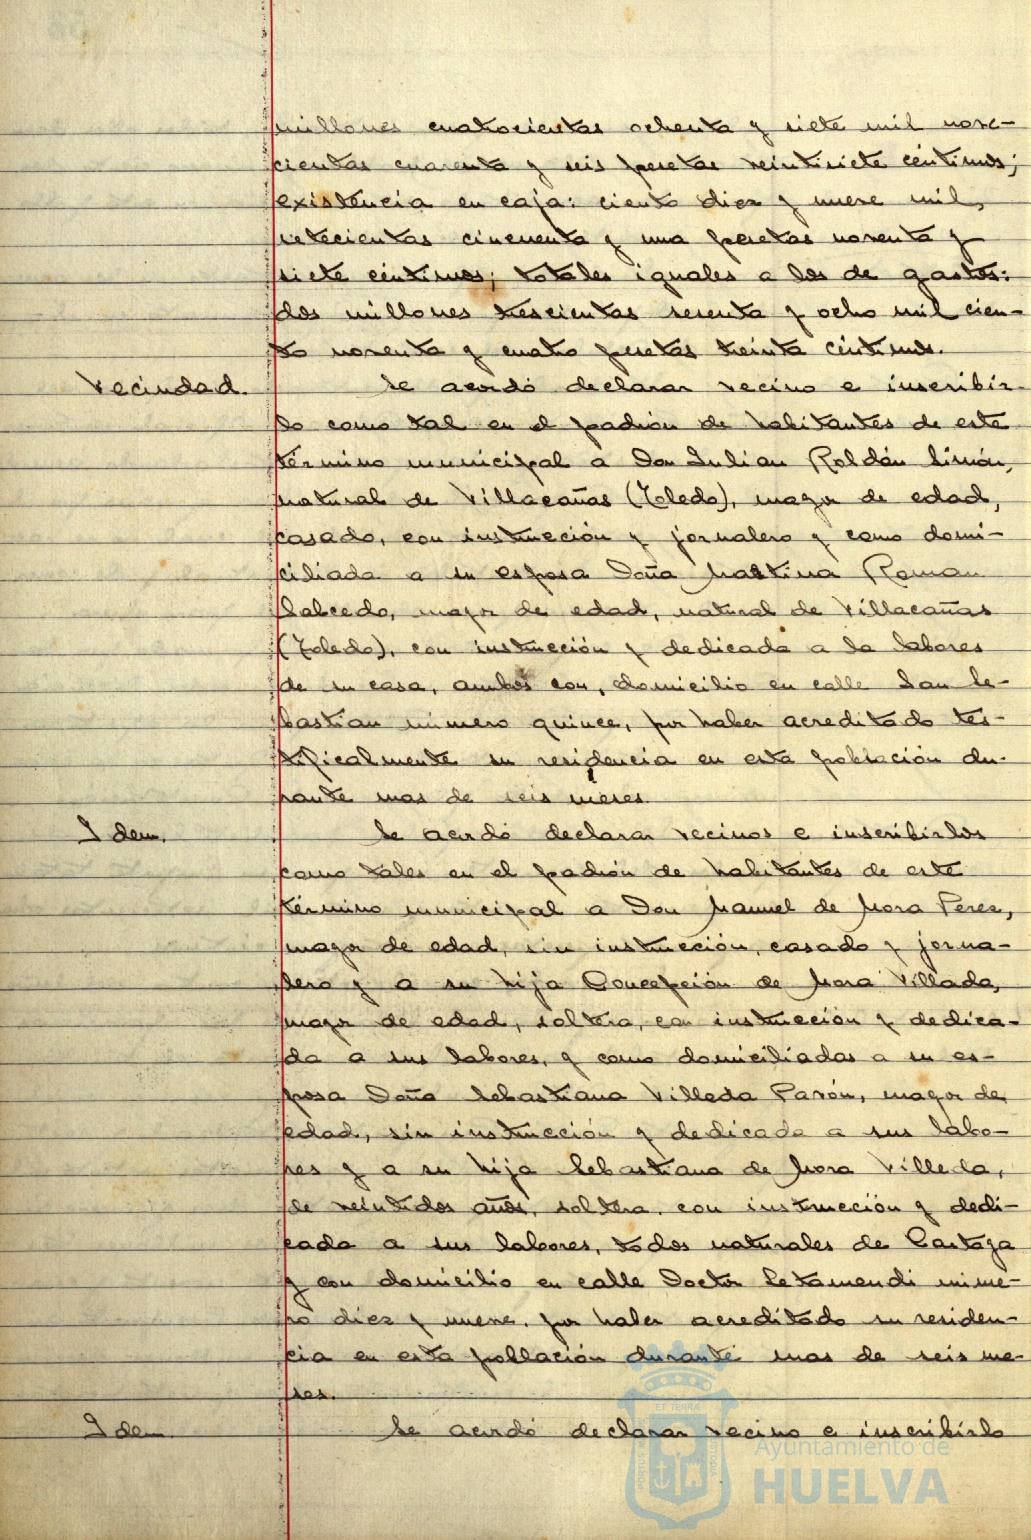 millones cuatrocientas ochenta y siete mil nove-
cientas cuarenta y seis pesetas veintisiete céntimos;
existencia en caja: ciento diez y nueve mil,
setecientas cincuenta y una pesetas noventa y
siete céntimos; totales iguales a los de gastos:
dos millones trescientas sesenta y ocho mil cien-
to noventa y cuatro pesetas treinta céntimos.
Vecindad. Se acordó declarar vecino e inscribir-
lo como tal en el padrón de habitantes de este
término municipal a Don Julian Roldán Simón,
natural de Villacañas (Toledo), mayor de edad,
casado, con instrucción y jornalero y como domi-
ciliada a su esposa Doña Martina Roman
Salcedo, mayor de edad, natural de Villacañas
(Toledo), con instrucción y dedicada a la labores
de su casa, ambos con, domicilio en calle San Se-
bastian número quince, por haber acreditado tes-
tificalmente su residencia en esta población du-
rante mas de seis meses.
Idem. Se acordó declarar vecinos e inscribirlos
como tales en el padrón de habitantes de este
término municipal a Don Manuel de Mora Perez,
mayor de edad, sin instrucción, casado y jorna-
lero y a su hija Concepción de Mora Villada,
mayor de edad, soltera, con instrucción y dedica-
da a sus labores, y como domiciliadas a su es-
posa Doña Sebastiana Villeda Pavón, mayor de
edad, sin instrucción y dedicada a sus labo-
res y a su hija Sebastiana de Mora Villeda,
de veintidos años, soltera, con instrucción y dedi-
cada a sus labores, todos naturales de Cartaya
y con domicilio en calle Doctor Letamendi núme-
ro diez y nueve, por haber acreditado su residen-
cia en esta población durante mas de seis me-
ses.
Idem. Se acordó declarar vecino e inscribirlo
Ayuntamiento de
HUELVA